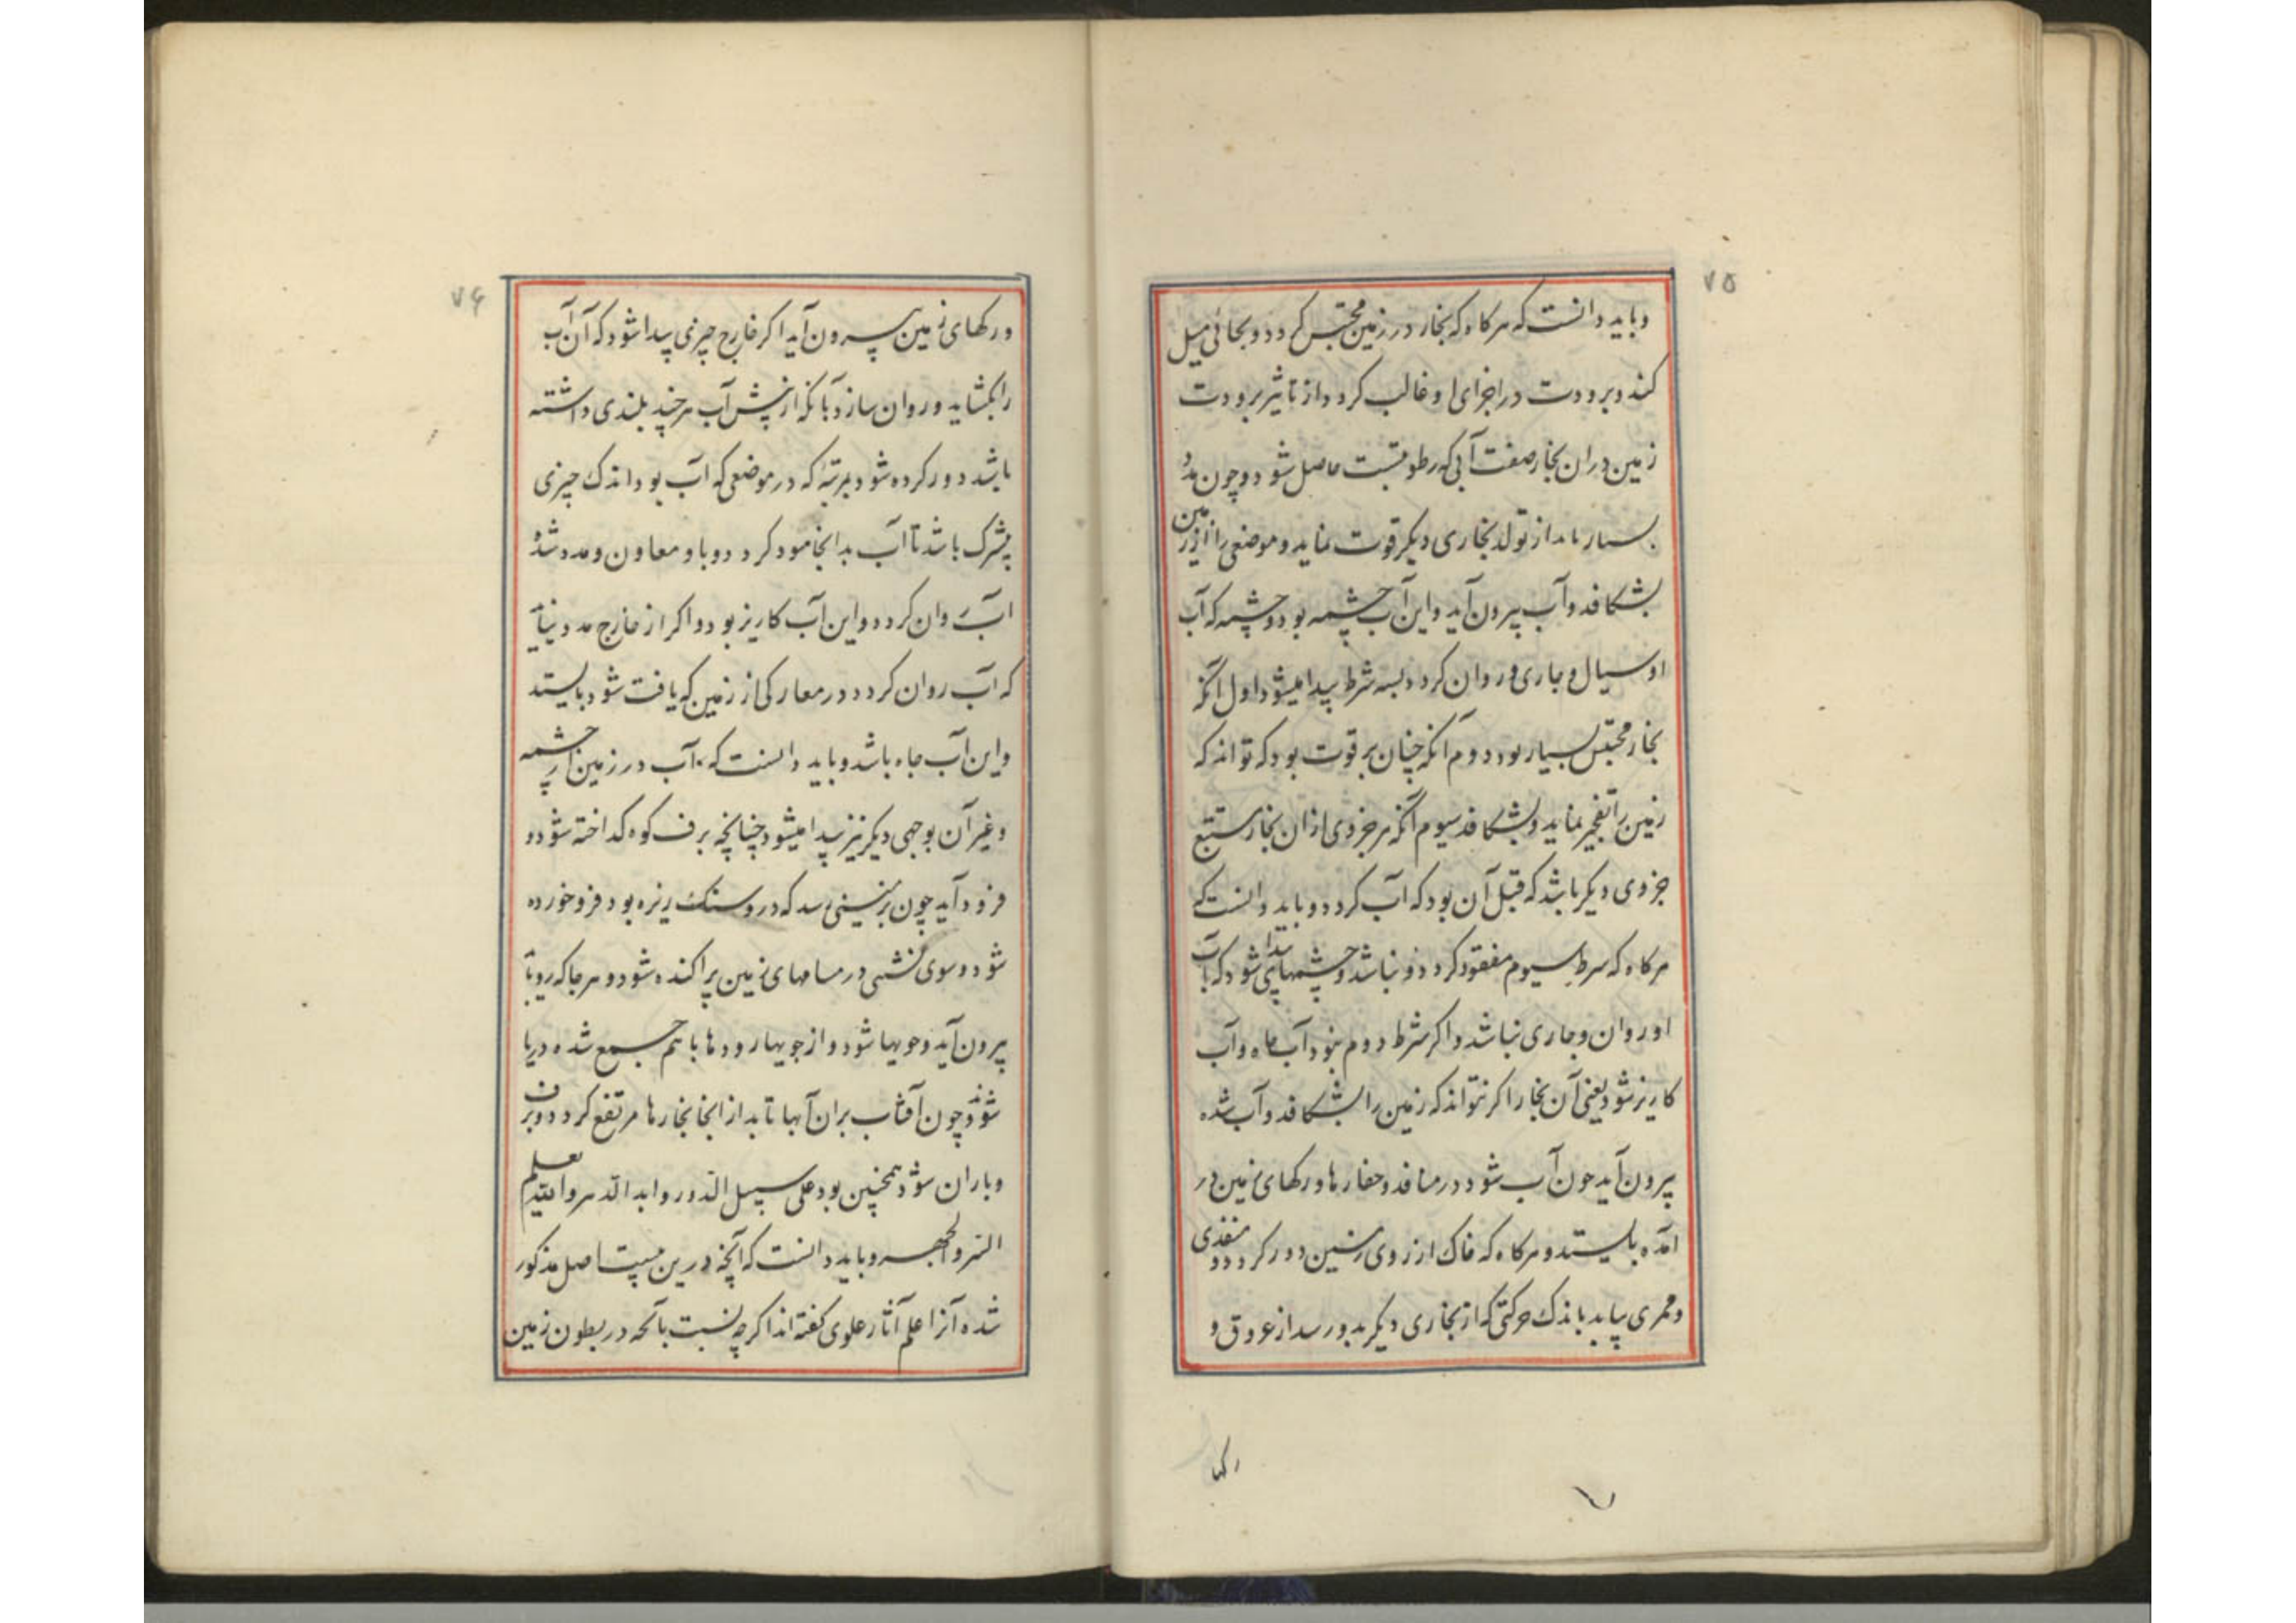 ۷۵
وباید دانست که هرکاه که بخار در زمین محتبس کردد و بجائی میل
کند و برودت در اجزای او غالب کردد از تاثیر برودت
زمین دران بخار صفت آبی که رطوبتست حاصل شود و چون مدد
بسیار یابد از تولد بخاری دیکر قوت نماید و موضعی را از زمین
بشکافد و آب بیرون آید و این آب چشمه بود و چشمه که آب
او سیال و جاری و روان کردد بسه شرط پیدا میشود اول آنکه
بخار محتبس بسیار بود دوم آنکه چنان بر قوت بود که تواند که
زمین را تفجیر نماید و بشکافد سیوم آنکه هر جزوی ازان بخار مستتبع
جزوی دیکر باشد که قبل آن بود که آب کردد و باید دانست که
هرکاه که شرط سیوم مفقود کردد و نباشد چشمهای پیدا شود که آب
او روان و جاری نباشد و اکر شرط دوم نبود آب چاه و آب
کاریز شود یعنی آن بخار اکر نتواند که زمین را بشکافد و آب شده
بیرون آید چون آب شود در منافذ و حفارها و رکهای زمین در
آمده بایستد و هرکاه که خاک از روی زمین دور کردد و منفذی
و ممری بیابد باندک حرکتی که از بخاری دیکر بدو رسد از عروق و
رکها
۷۶
و رکهای زمین بیرون آید اکر خارج چیزی پیدا شود که آن آب
را بکشاید و روان سازد بآنکه از پیش آب هر چند بلندی داشته
باشد دور کرده شود بمرتبۀ که در موضعی که آب بود اندک چیزی
بیشترک باشد تا آب بدانجا مود کردد و باو معاون و مدد شد
آب روان کردد و این آب کاریز بود و اکر از خارج مدد نیابد
که آب روان کردد در معارکی از زمین که یافت شود بایستد
و این آب چاه باشد و باید دانست که آب در زمین از چشمه
و غیر آن بوجهی دیکر نیز پیدا میشود چنانچه برف کوه کداخته شود و
فرود آید چون بزمینی رسد که درو سنک ریزه بود فرو خورده
شود و سوی نشیبی در مسامهای زمین پراکنده شود و هر جا که رو یابد
بیرون آید و جویها شود و از جویها رودها با هم جمع شده دریا
شوند و چون آفتاب بران آبها تابد از انجا بخارها مرتفع کردد و برف
و باران شود همچنین بود علی سبیل الدور و ابد الدهر والله یعلم
السر والجهر و باید دانست که آنچه درین بیست اصل مذکور
شده آنرا علم آثار علوی کفته اند اکرچه نسبت بآنچه در بطون زمین